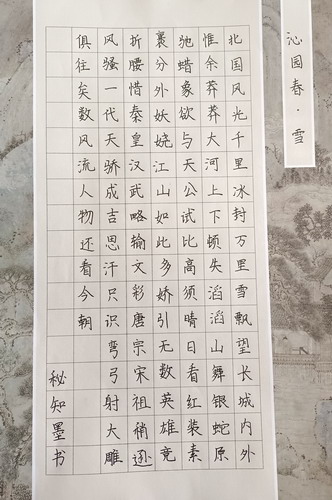 沁园春·雪
北国风光千里冰封万里雪飘望长城内外
惟余莽莽大河上下顿失滔滔山舞银蛇原
驰蜡象欲与天公试比高须晴日看红装素
裹分外妖娆江山如此多娇引无数英雄竞
折腰惜秦皇汉武略输文彩唐宗宋祖稍逊
风骚一代天骄成吉思汗只识弯弓射大雕
俱往矣数风流人物还看今朝
秘知墨书